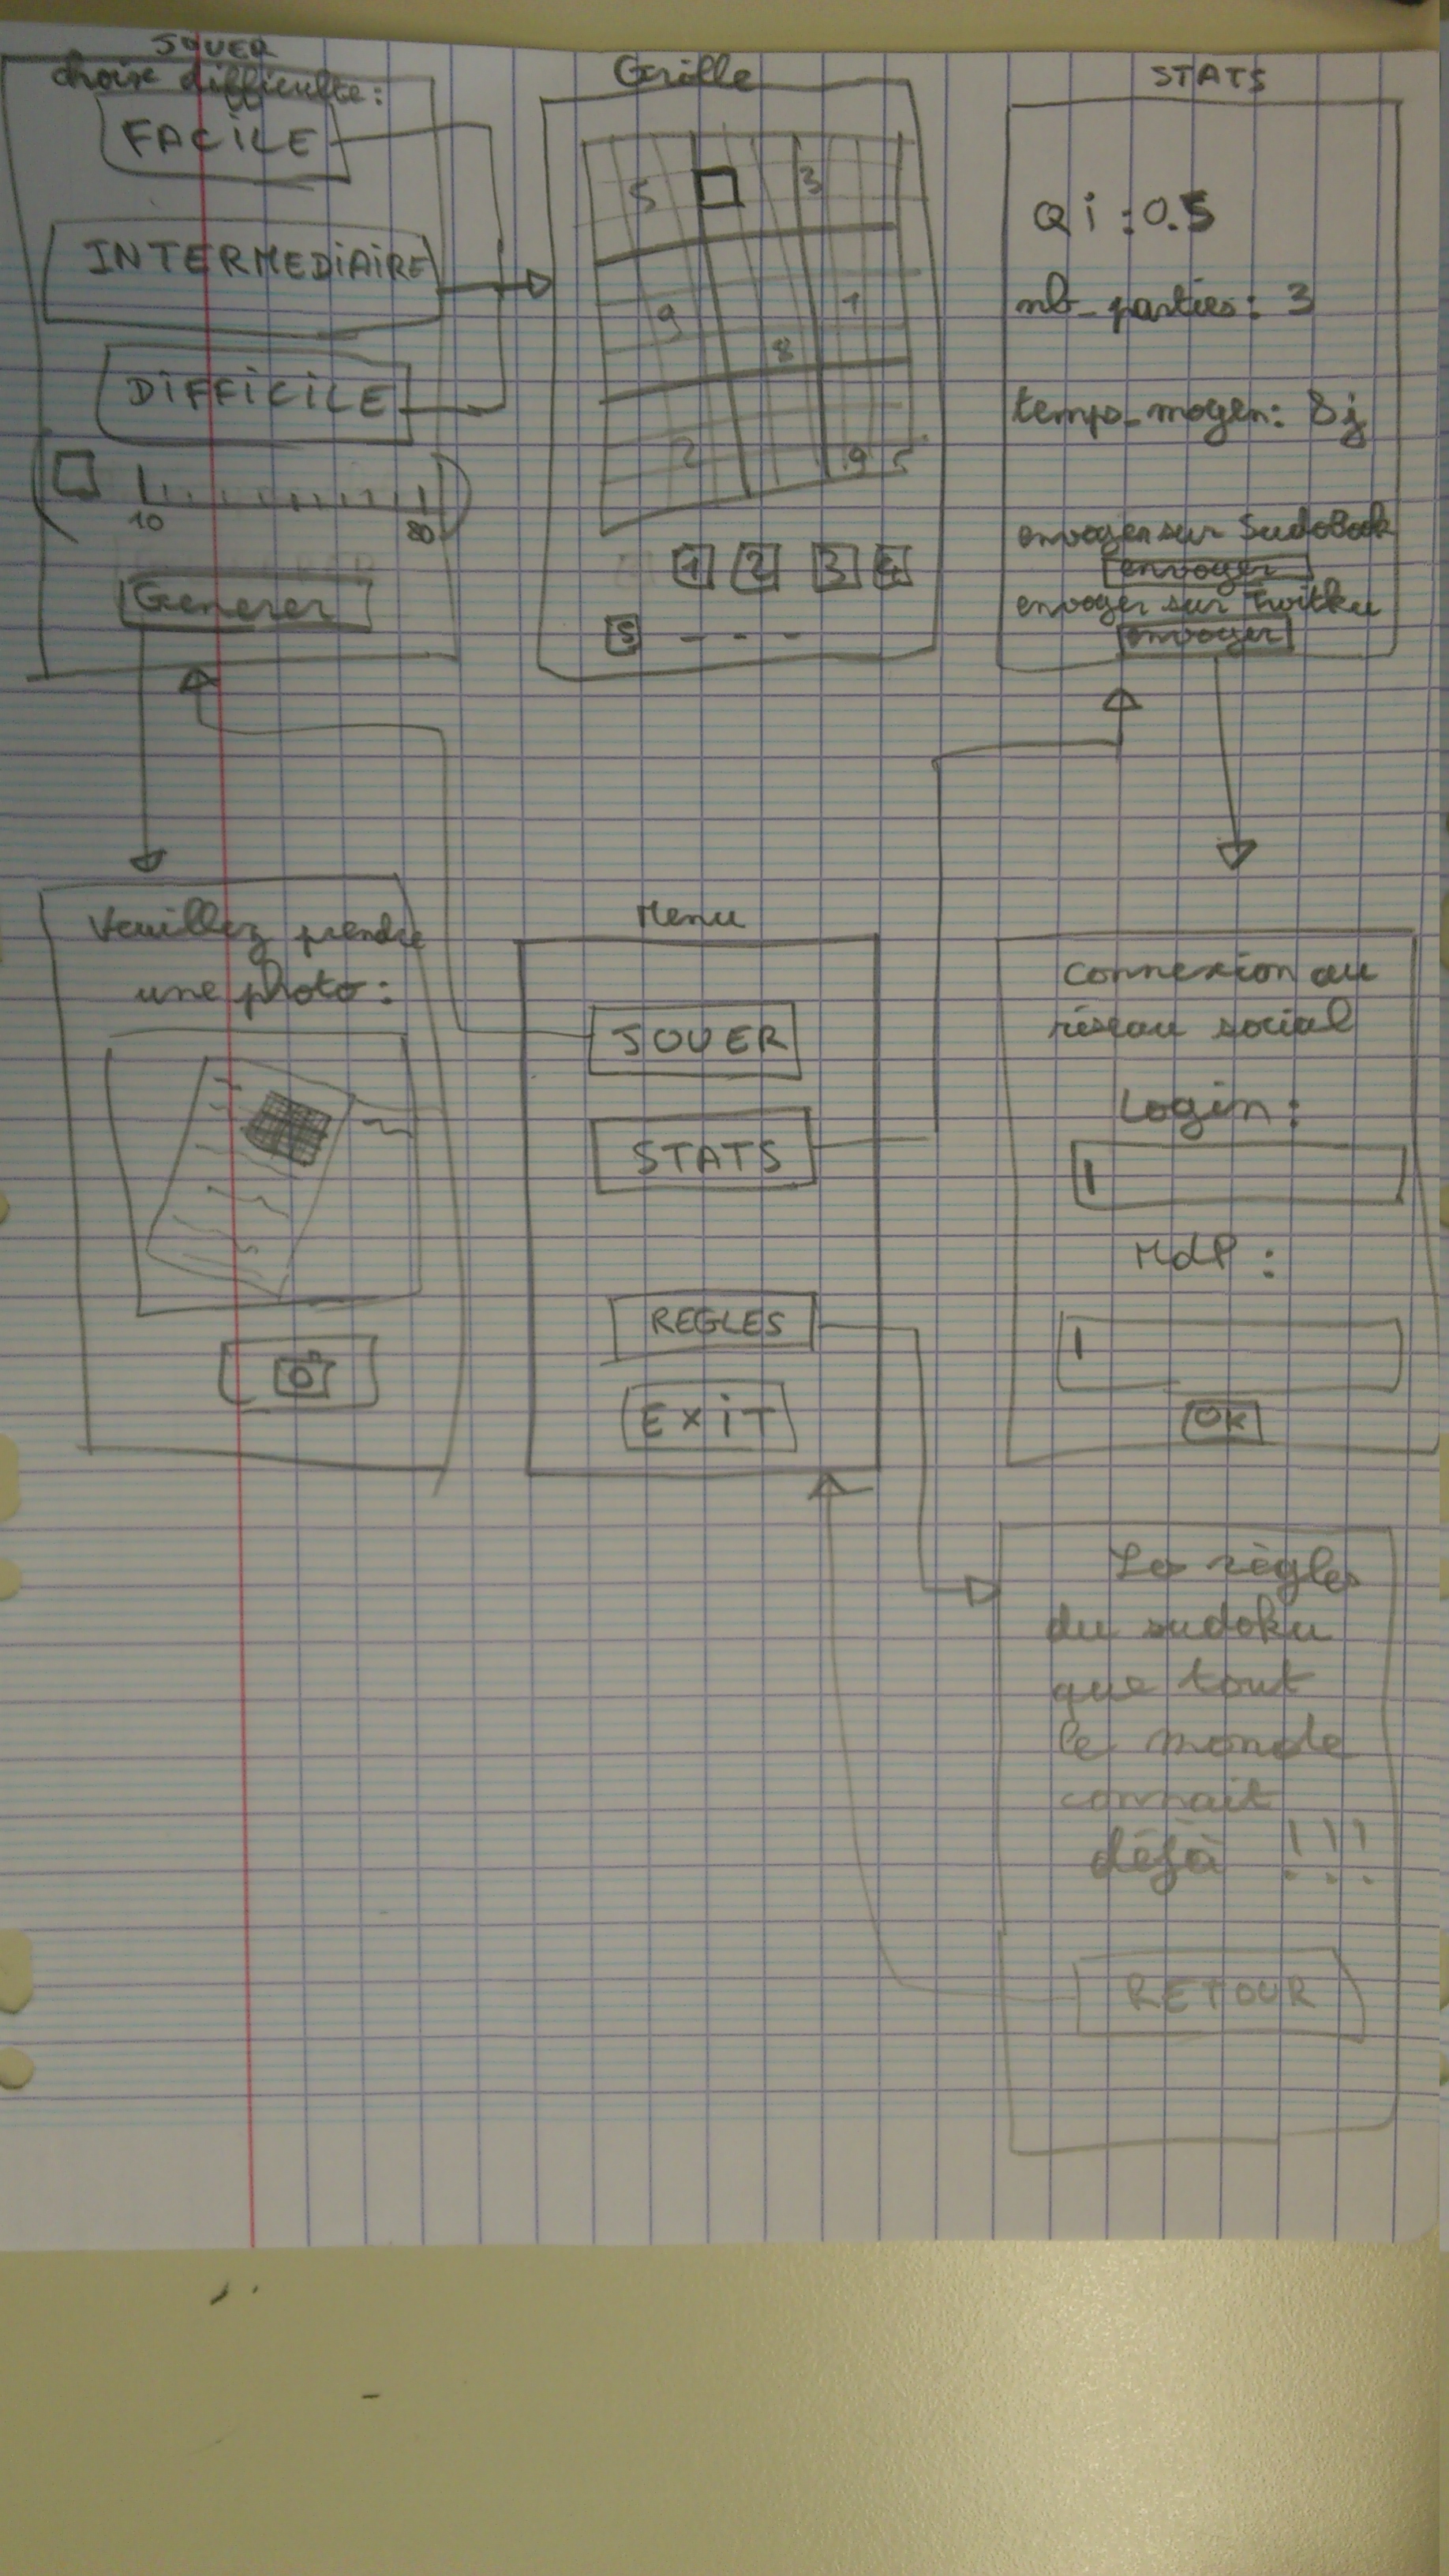 JOUER
choix difficulte:
FACiLE
INTERMEDiAiRE
DiFFiCiLE
10 80
Generer
Grille
5 3
9 1
8
2 9 5
1 2 3 4
5 - - -
STATS
Qi : 0.5
nb_parties: 3
temps_moyen: 8j
envoyer sur SudoBook
envoyer
envoyer sur Twitku
envoyer
Veuillez prendre
une photo:
Menu
JOUER
STATS
REGLES
EXiT
Connexion au
réseau social
Login :
MdP :
OK
Les règles
du sudoku
que tout
le monde
connait
déjà !!!
RETOUR